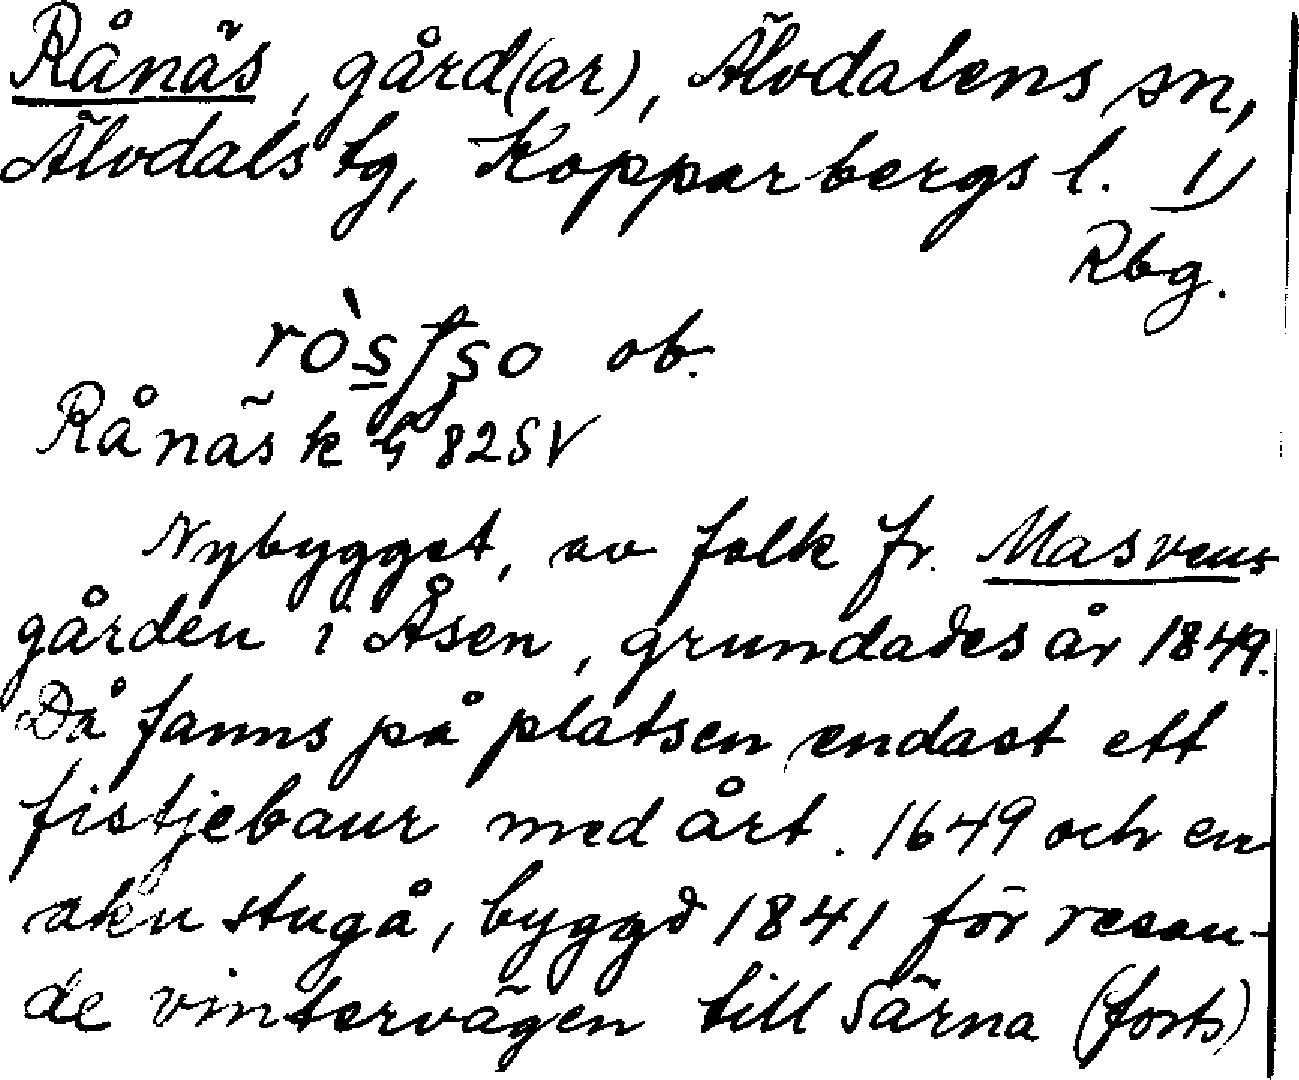 Rånäs, gård(ar), Älvdalens sn,
Älvdals tg, Kopparbergs l. 1)
Rbg.
ob.
Rånäs k 82SV
Nybygget, av folk fr. Masvens-
gården i Åsen, grundades år 1849.
Då fanns på platsen endast ett
fistjebaur med årt. 1649 och en
stugå, byggd 1841 för resan-
de vintervägen till Särna (forts)